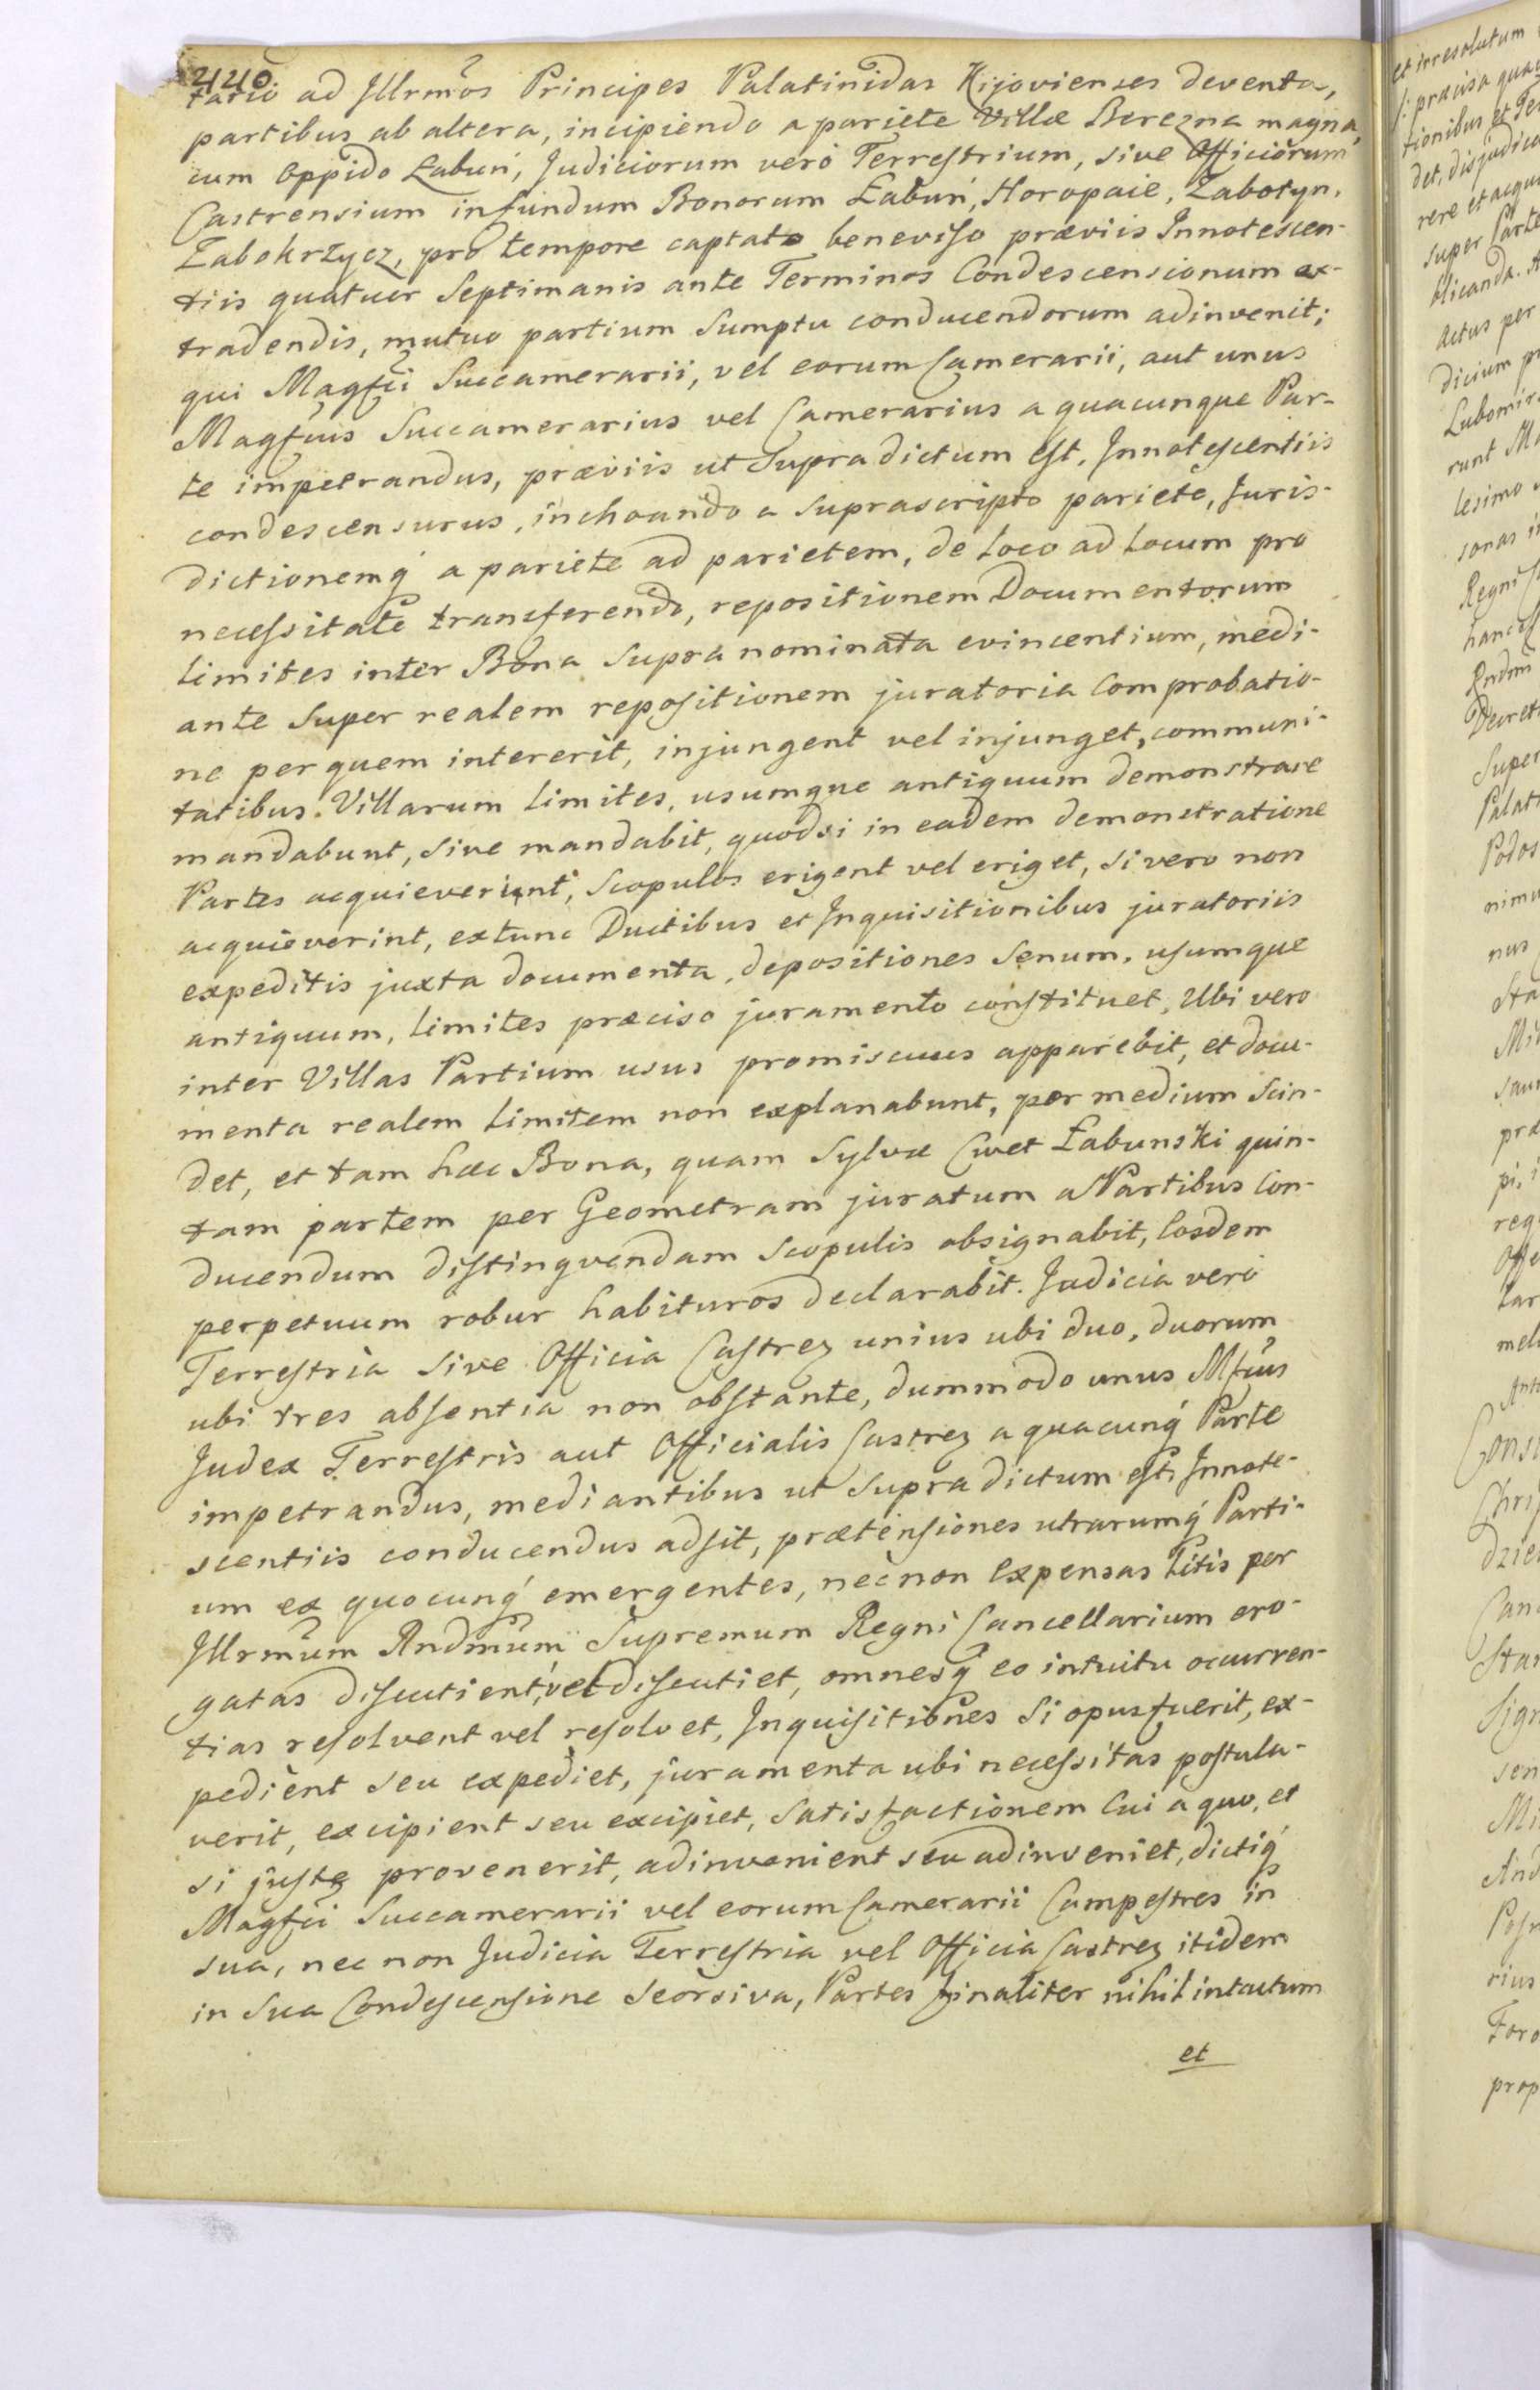 440.
tario ad Jllrmos Principes Palatinidas Kijovienses deventa,
partibus ab altera, incipiendo a pariete Villæ Berezna magna,
cum Oppido Łabuń, Judiciorum vero Terrestrium, sive Officiorum
Castrensium in fundum Bonorum Łabuń, Horopaie, Zabotyn,
Zabokrzycz, pro tempore captato beneviso præviis Innotescen-
tiis quatuor Septimanis ante Terminos Condescensionum ex-
tradendis, mutuo partium Sumptu conducendorum adinvenit;
qui Magfci Succamerarii, vel eorum Camerarii, aut unus
Magfcus Succamerarius vel Camerarius a quacunque Par-
te impetrandus, præviis ut Supra dictum est, Jnnotescentiis
condescensurus, inchoando a suprascripto pariete, Juris-
dictionemq́ a pariete ad parietem, de loco ad locum pro
necessitate transferendo, repositionem Documentorum
limites inter Bona supra nominata evincentium, medi-
ante super realem repositionem juratoria Comprobatio-
ne per quem intererit, injungent vel injunget, communi-
tatibus Villarum limites, usumque antiquum demonstrare
mandabunt, sive mandabit, quodsi in eadem demonstratione
Partes acquieverint, Scopulos erigent vel eriget, si vero non
acquieverint, extunc Ductibus et Jnquisitionibus juratoriis
expeditis juxta documenta, depositiones Senum, usumque
antiquum, limites præciso juramento constituet, Ubi vero
inter Villas Partium usus promiscuus apparebit, et docu-
menta realem limitem non explanabunt, per medium Scin-
det, et tam hæc Bona, quam Sylvæ Cwet Łabunski quin-
tam partem per Geometram juratum a Partibus Con-
ducendum distingvendam Scopulis absignabit, Eosdem
perpetuum robur habituros declarabit. Judicia vero
Terrestria sive Officia Castrez unius ubi duo, duorum
ubi tres absentia non obstante, dummodo unus Mfcus
Judex Terrestris aut Officialis Castrez a quacunq́ Parte
impetrandus, mediantibus ut supra dictum est, Jnnote-
scentiis conducendus adsit, prætensiones utrarumq́ Parti-
um ex quocunq́ emergentes, nec non Expensas Litis per
Jllrmum Rndmum Supremum Regni Cancellarium ero-
gatas discutient, vel discutiet, omnesq́ eo intuitu occurren-
tias resolvent vel resolvet, Jnquisitiones si opus fuerit, ex-
pedient seu expediet, juramenta ubi necessitas postula-
verit, excipient seu excipiet, Satisfactionem Cui a quo, et
si juste provenerit, adinvenient seu adinveniet, dictiq́
Magfci Succamerarii vel eorum Camerarii Campestres in
sua, nec non Judicia Terrestria vel Officia Castrez itidem
in Sua Condescensione Seorsiva, Partes finaliter nihil intactum
et
et irresolutum